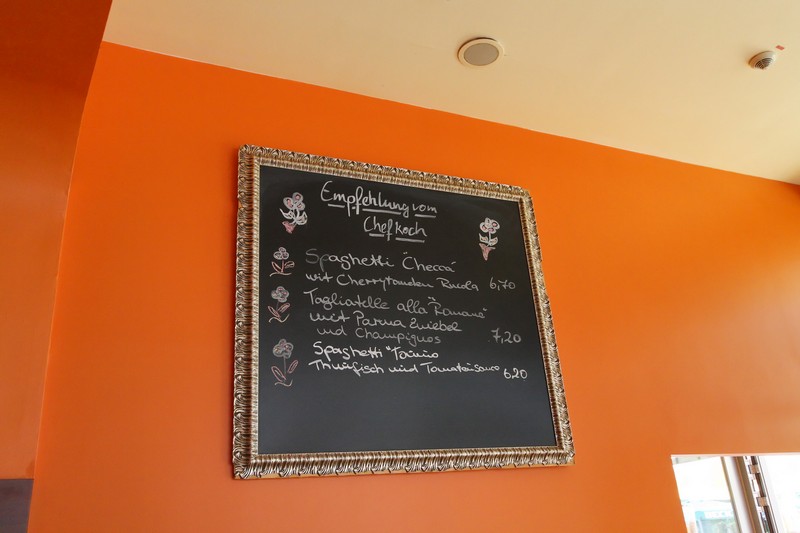 Empfehlung vom
Chefkoch
Spaghetti "Checca"
mit Cherrytomaten Rucola 6,70
Tagliatelle alla "Romana"
mit Parma Zwiebel
und Champignos 7,20
Spaghetti "Tonino
Thunfisch und Tomatensauce 6,20